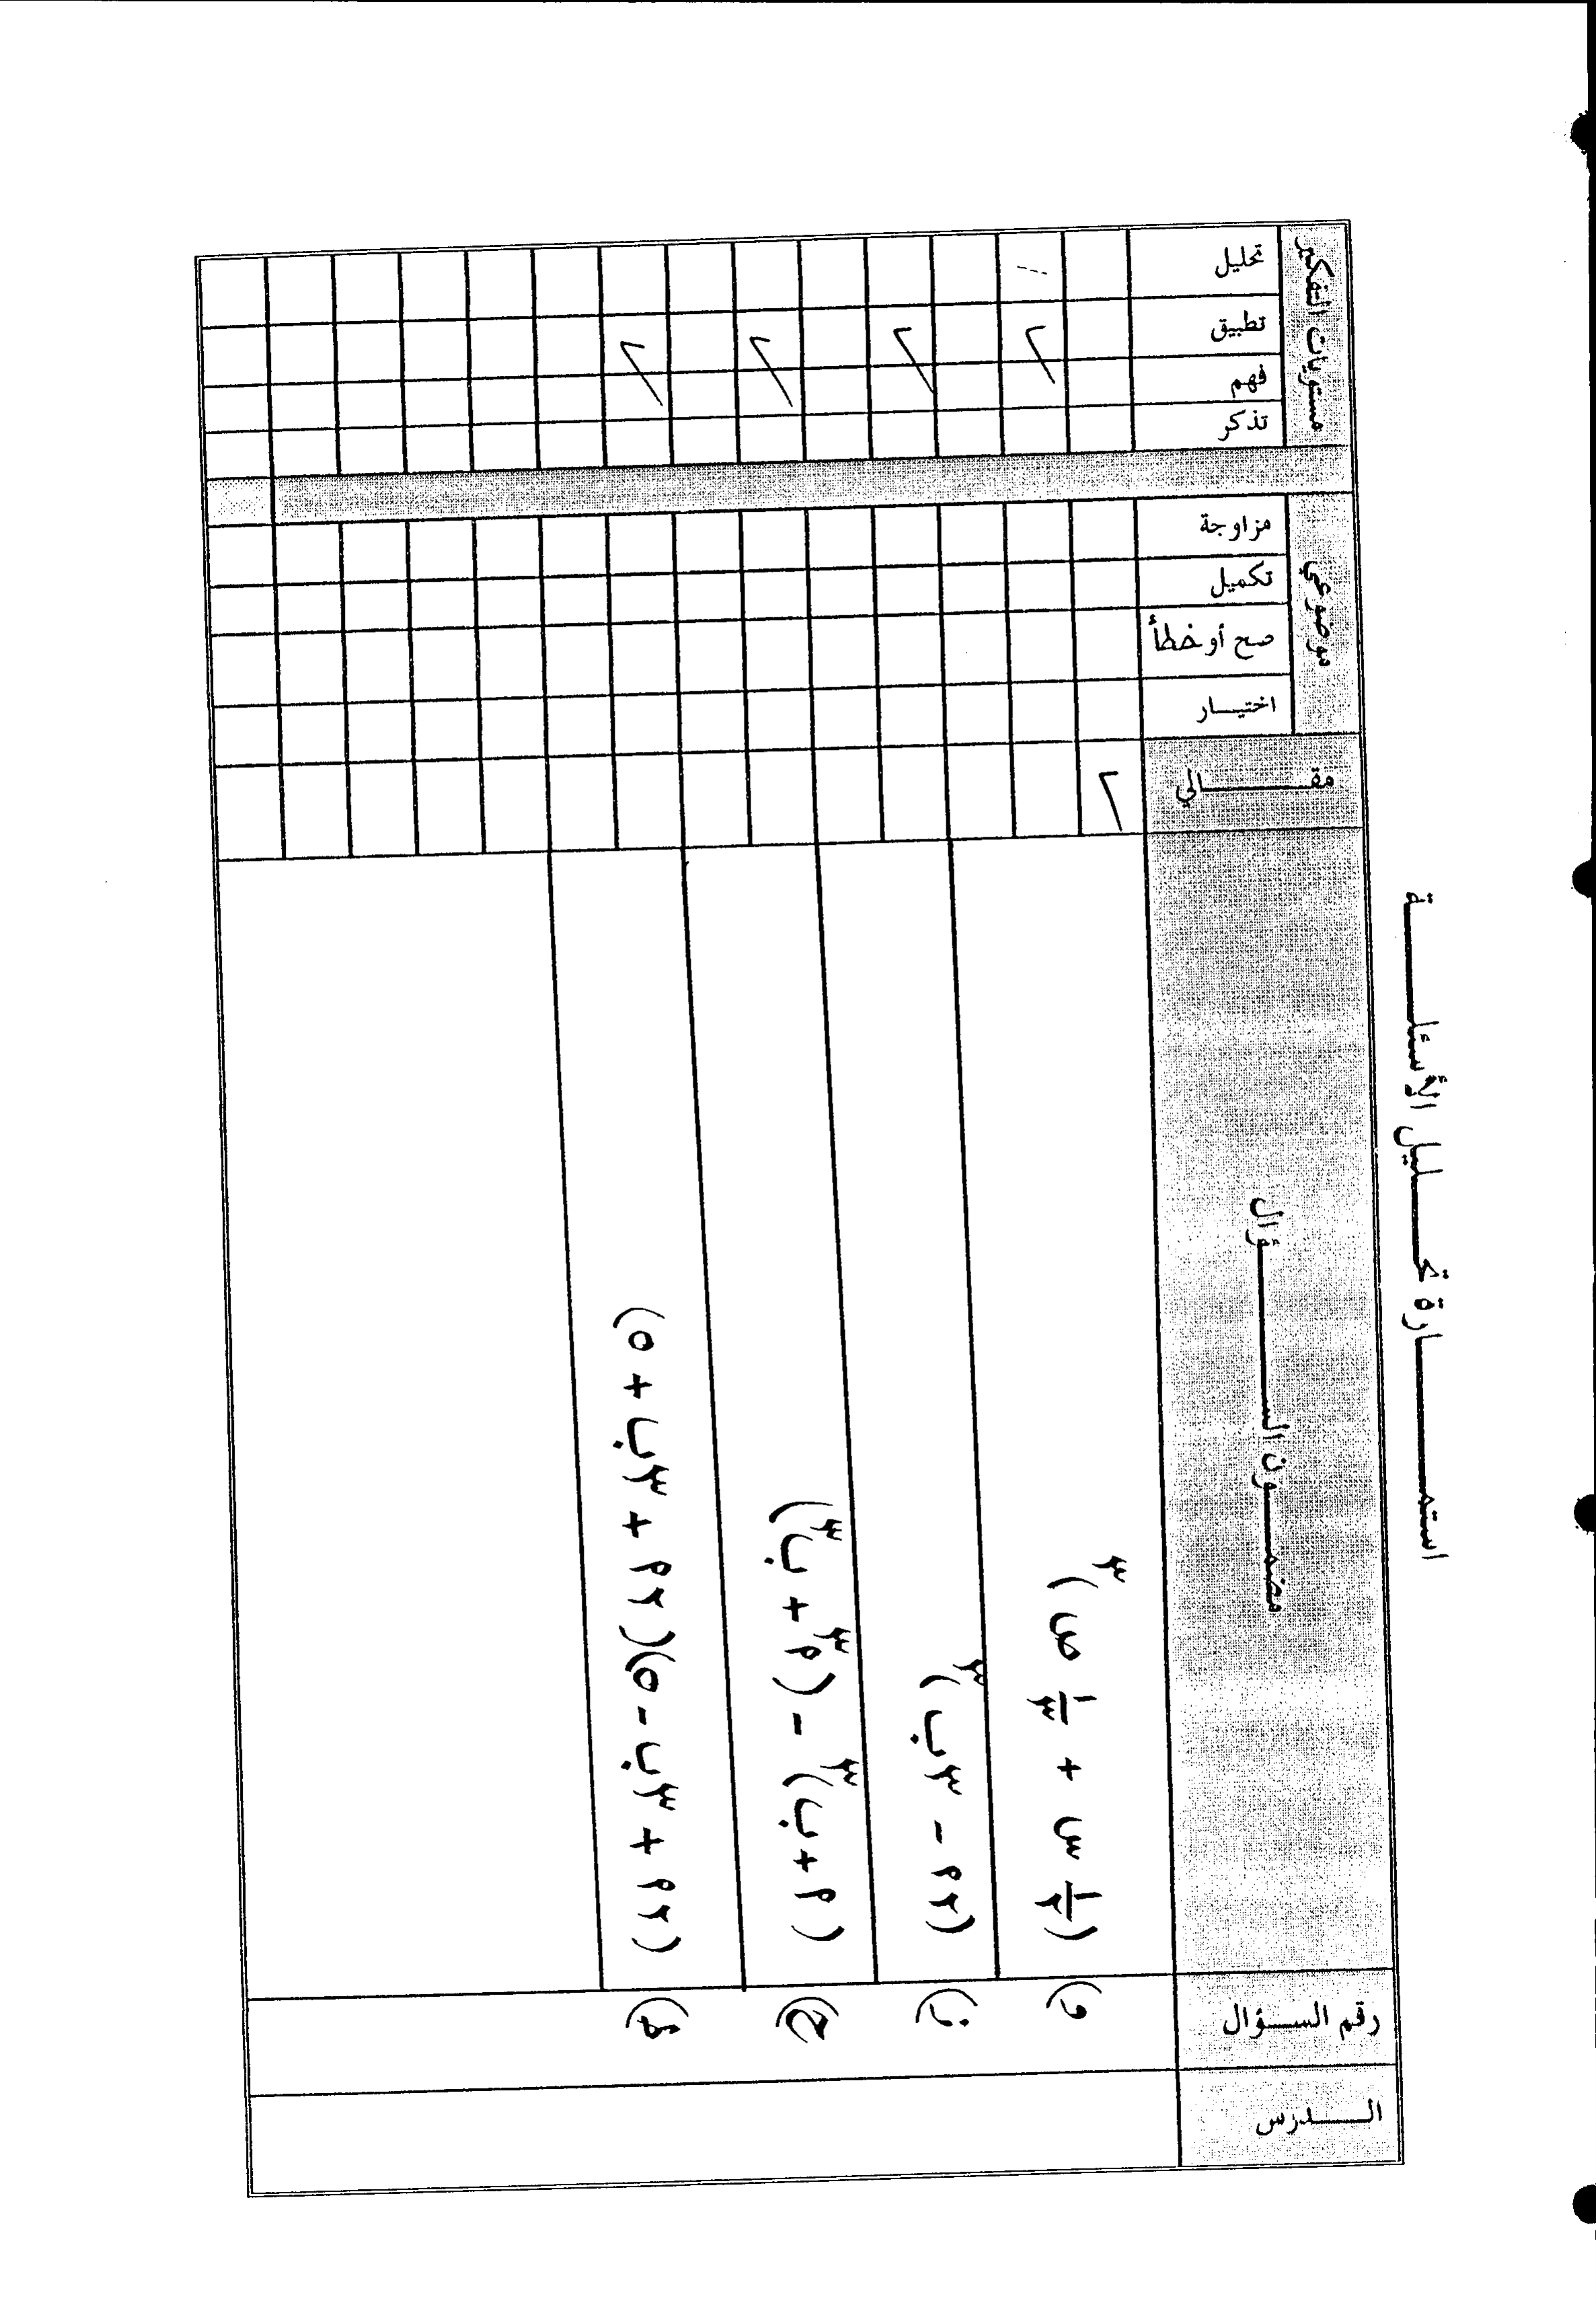 استمارة تحليل الأسئلة
الدرس
رقم السؤال
مضمون السؤال
مقالي
موضوعي
اختيار
صح أو خطأ
تكميل
مزاوجة
مستويات التفكير
تذكر
فهم
تطبيق
تحليل
و) (١/٢ س + ١/٣ ص)^٣
ز) (٢م - ٣ب)^٣
ح) (م + ب)^٣ - (م^٣ + ب^٣)
ط) (٢م + ٣ب - ٥)(٢م + ٣ب + ٥)